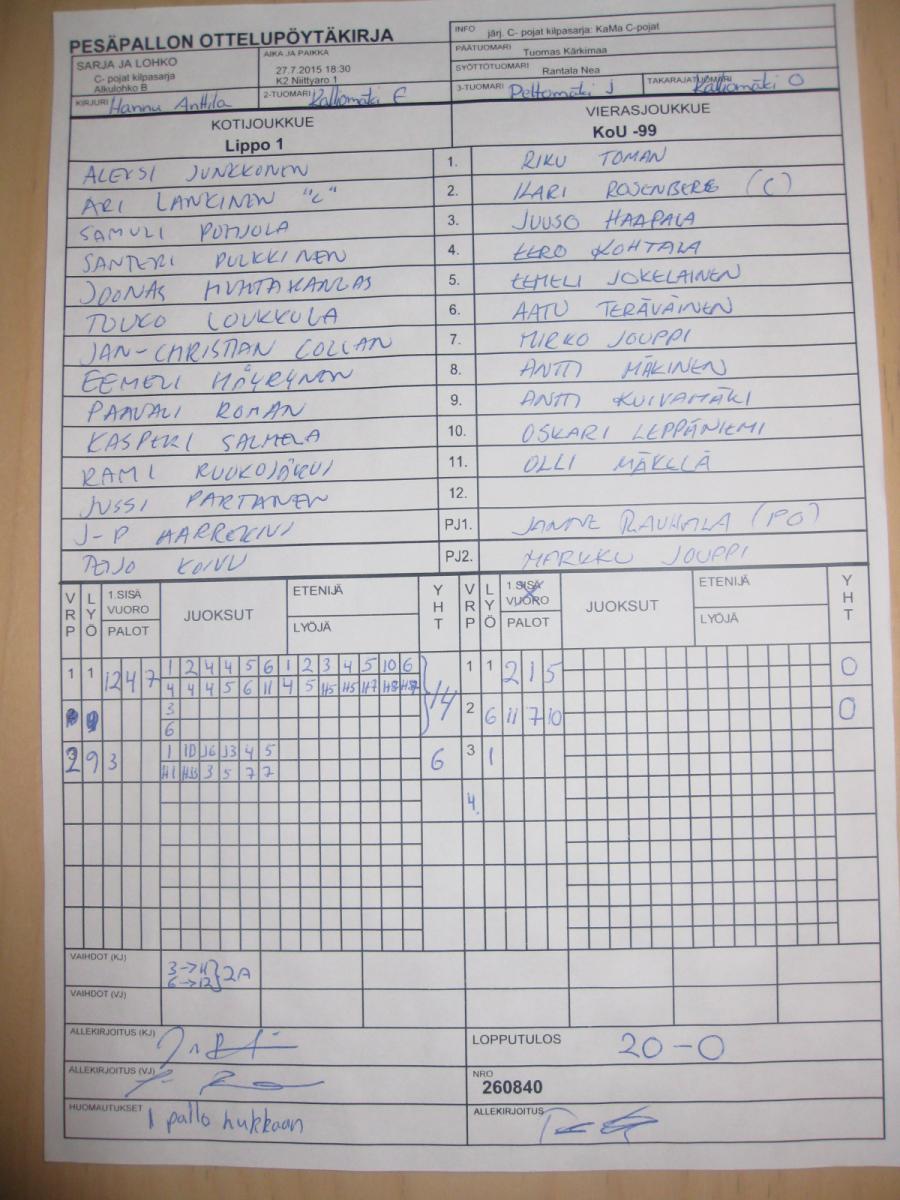 PESÄPALLON OTTELUPÖYTÄKIRJA
INFO järj. C- pojat kilpasarja: KaMa C-pojat
PÄÄTUOMARI Tuomas Kärkimaa
SARJA JA LOHKO
C- pojat kilpasarja
Alkulohko B
AIKA JA PAIKKA
27.7.2015 18:30
K2 Niittyaro 1
SYÖTTÖTUOMARI Rantala Nea
KIRJURI Hannu Anttila
2-TUOMARI Kalliomäki E
3-TUOMARI Peltomäki J
TAKARAJATUOMARI Kalliomäki O
KOTIJOUKKUE
Lippo 1
VIERASJOUKKUE
KoU -99
ALEKSI JUNKKONEN 1. RIKU TOMAN
ARI LANKINEN "C" 2. ILARI ROSENBERG (C)
SAMULI POHJOLA 3. JUUSO HAAPALA
SANTERI PULKKINEN 4. EERO KOHTALA
JOONAS HUHTAKANGAS 5. EEMELI JOKELAINEN
TOUKO LOUKKOLA 6. AATU TERÄVÄINEN
JAN-CHRISTIAN COLLAN 7. MIRKO JOUPPI
EEMELI HÖYRYNEN 8. ANTTI MÄKINEN
PAAVALI ROMAN 9. ANTTI KUIVAMÄKI
KASPERI SALMELA 10. OSKARI LEPPÄNIEMI
RAMI RUOKOJÄRVI 11. OLLI MÄKELÄ
JUSSI PARTANEN 12.
J-P AARREKIVI PJ1. JANNE RAUHALA (PO)
REIJO KOIVU PJ2. MARKKU JOUPPI
VRP LYÖ 1.SISÄ VUORO PALOT JUOKSUT ETENIJÄ LYÖJÄ YHT VRP LYÖ 1.SISÄ VUORO PALOT JUOKSUT ETENIJÄ LYÖJÄ YHT
1 1 12 4 7 1 2 4 4 5 6 1 2 3 4 5 10 6 14 1 1 2 1 5 0
4 4 4 5 6 11 4 5 H5 H5 H7 H8
3 2 6 11 7 10 0
6
2 9 3 1 10 J6 J3 4 5 6 3 1
H1 3 5 7 7
4.
VAIHDOT (KJ) 3→11 6→12 } 2A
VAIHDOT (VJ)
ALLEKIRJOITUS (KJ)
LOPPUTULOS 20-0
ALLEKIRJOITUS (VJ)
NRO
260840
HUOMAUTUKSET 1 pallo hukkaan
ALLEKIRJOITUS